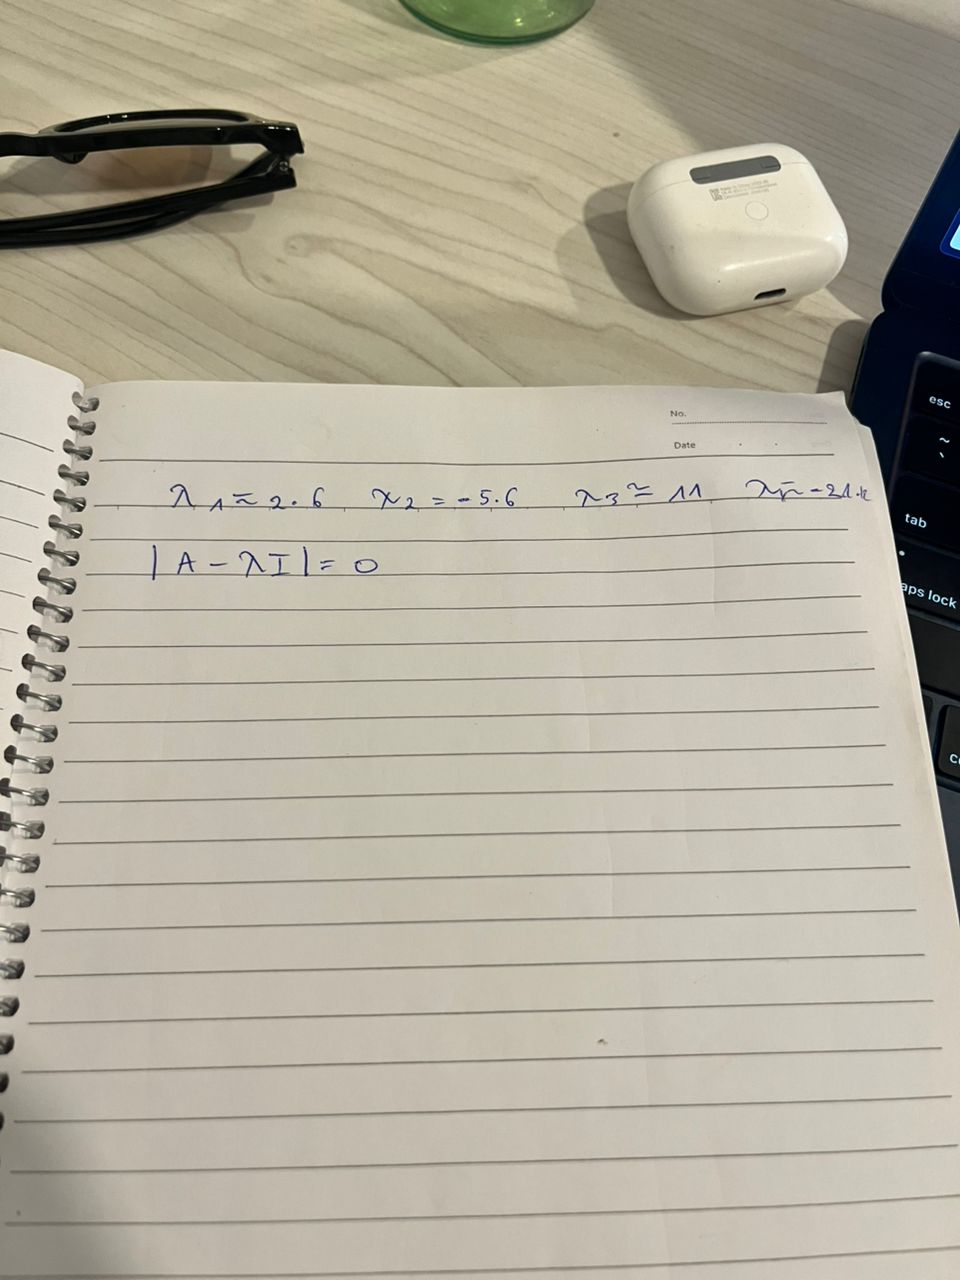 No.
Date
λ1 ≈ 2.6 λ2 = -5.6 λ3 ≃ 11
|A - λI| = 0
esc
~
`
tab
caps lock